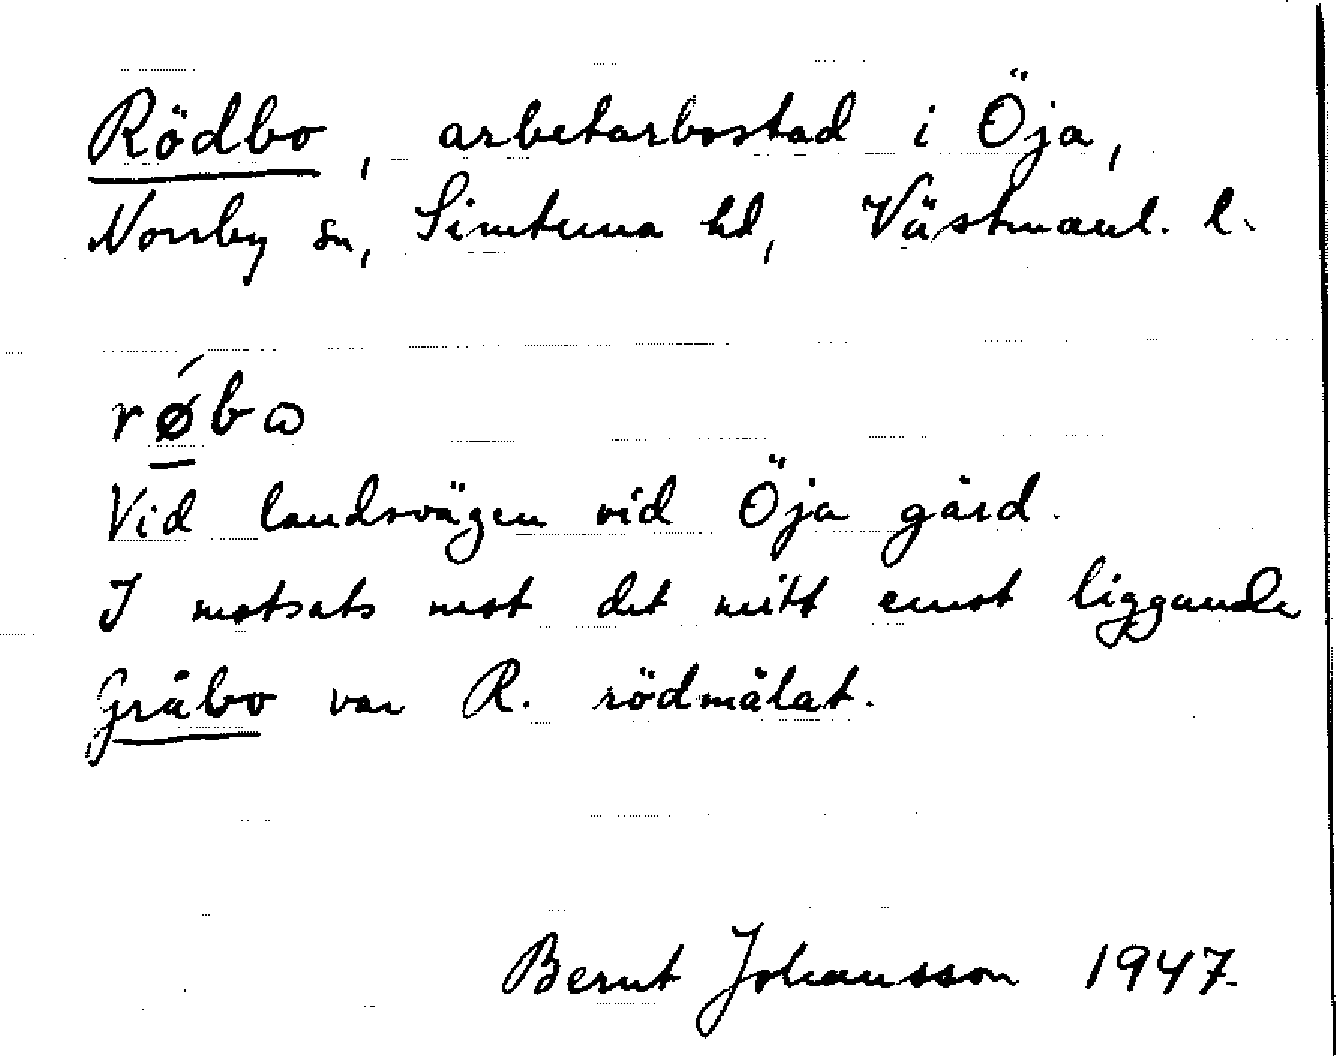 Rödbo, arbetarbostad i Öja,
Norrby sn, Simtuna hd, Västmanl. l.
rǿbω
Vid landsvägen vid Öja gård.
I motsats mot det mitt emot liggande
Gråbo var R. rödmålat.
Bernt Johansson 1947